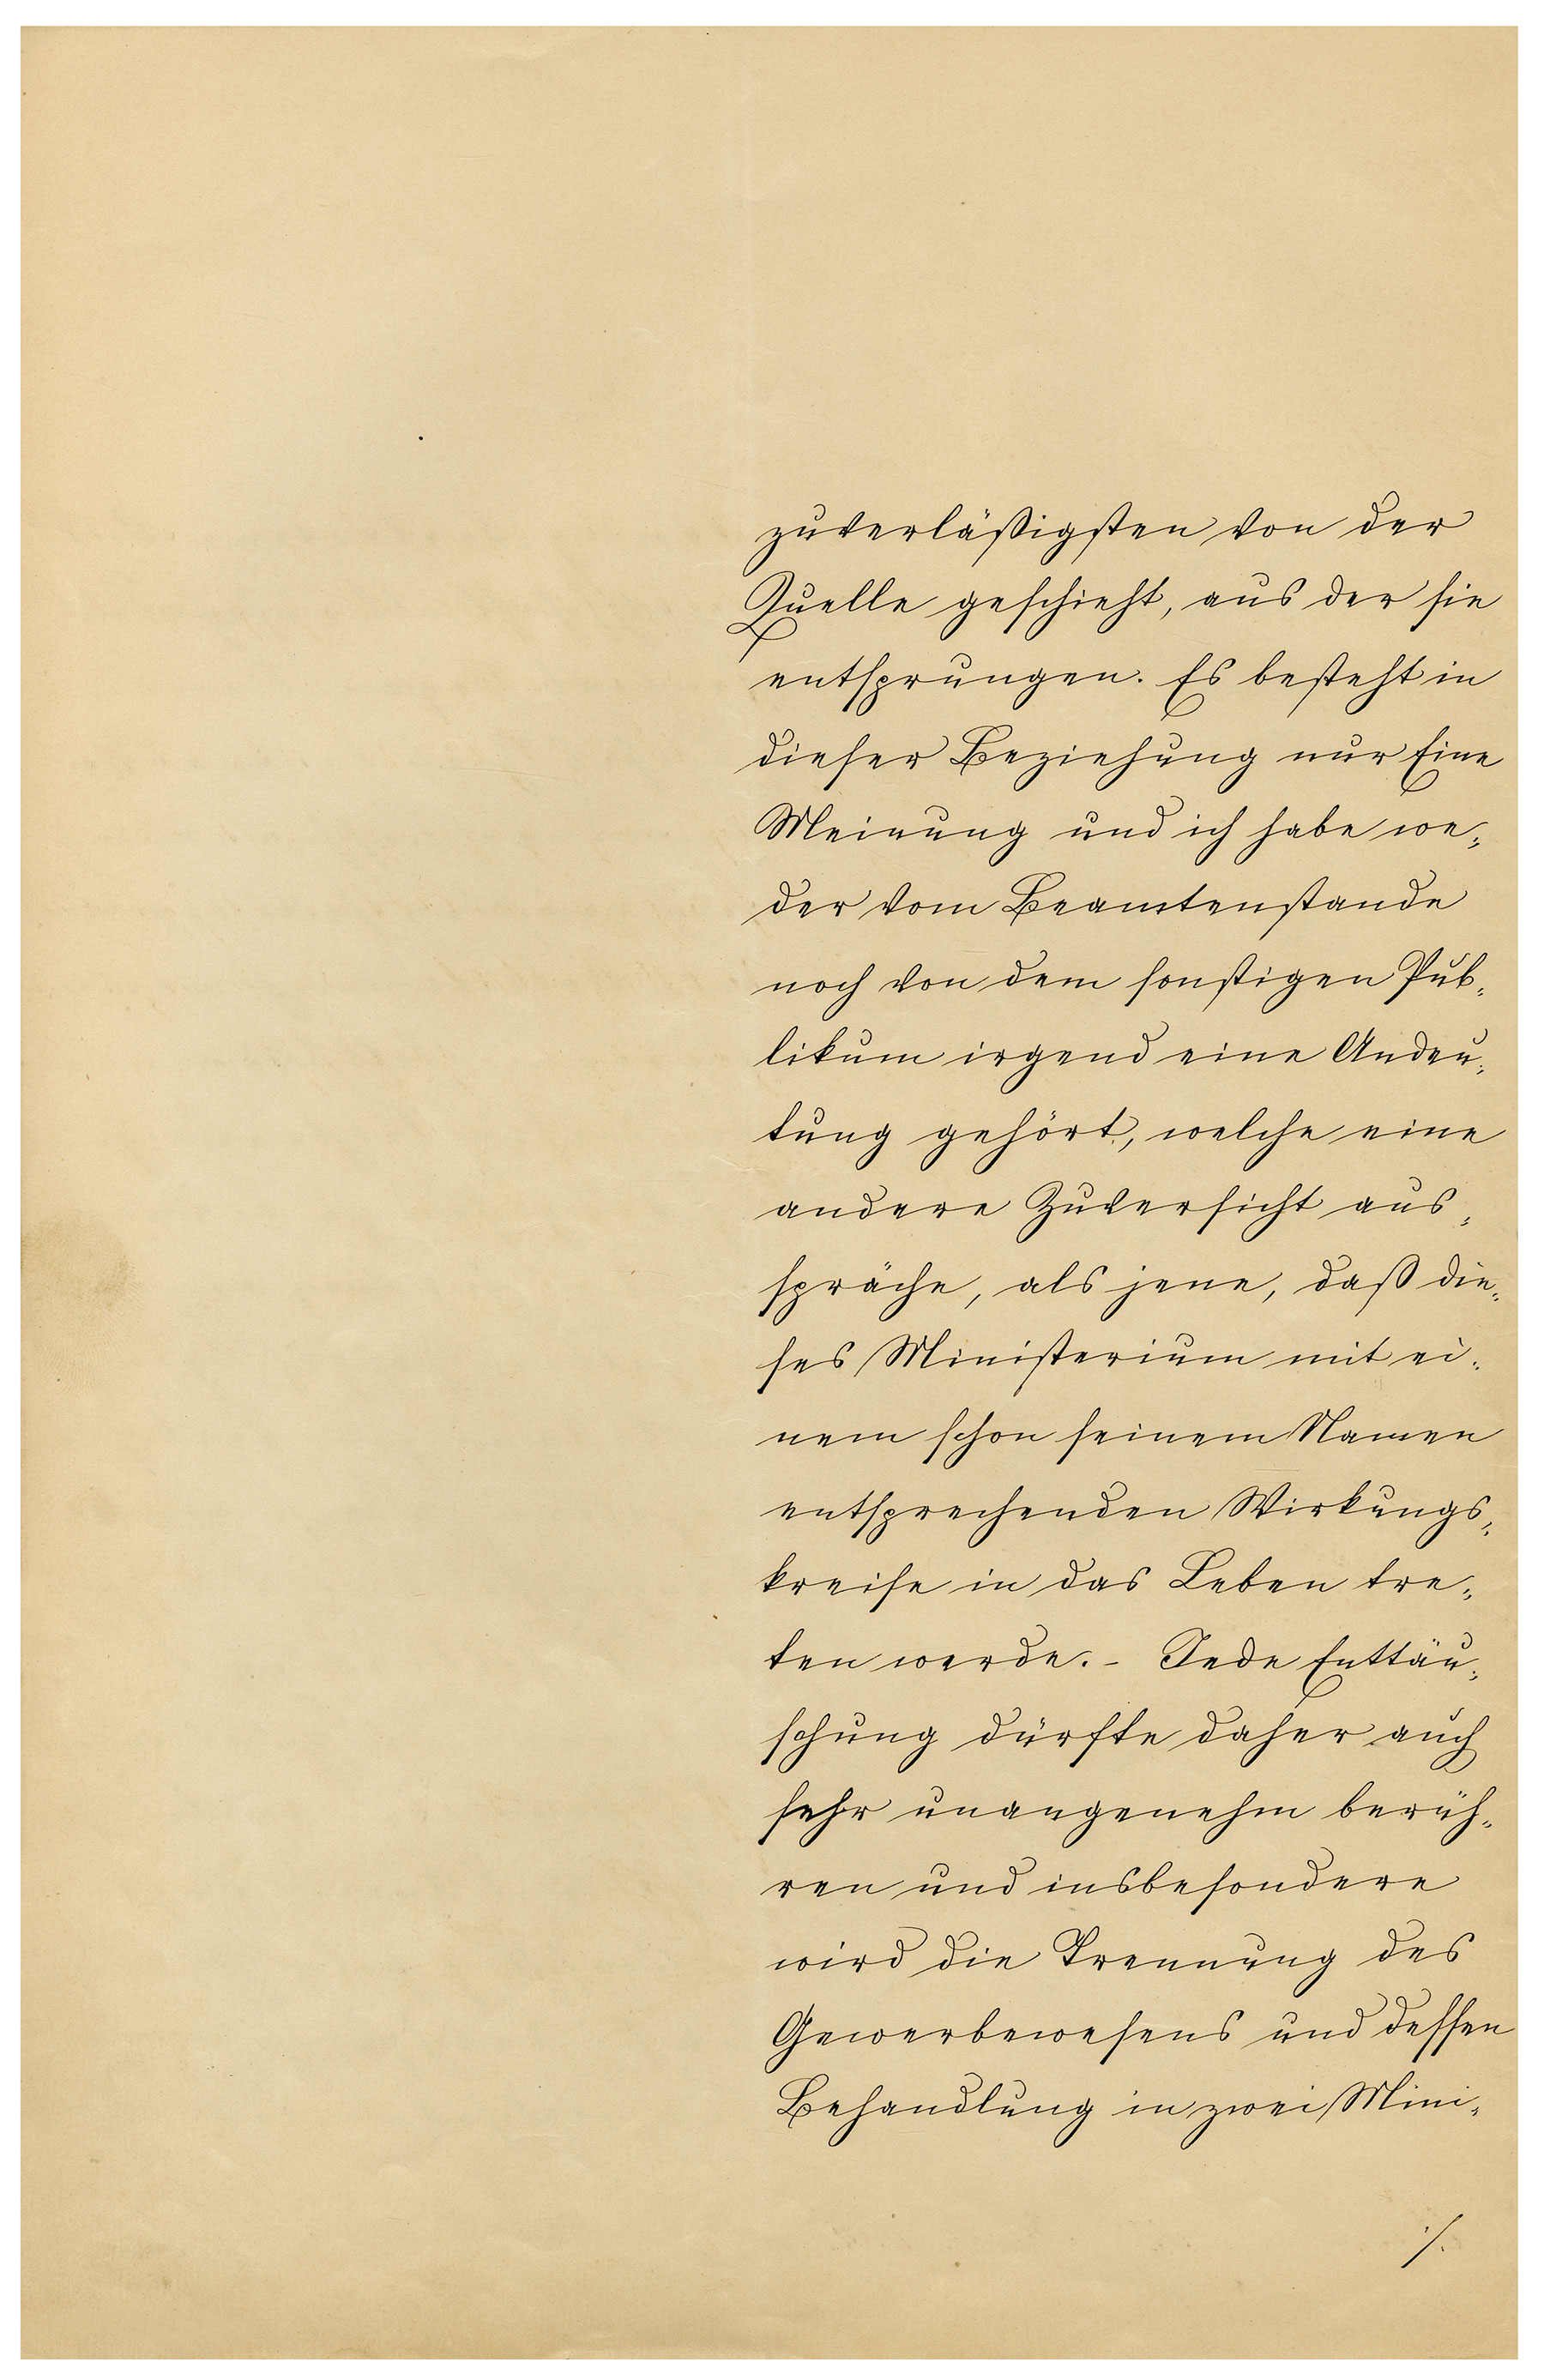 zuverläßigsten von der
Quelle geschieht, aus der sie
entsprungen. Es besteht in
dieser Beziehung nur Eine
Meinung und ich habe we⸗
der vom Beamtenstande
noch von dem sonstigen Pub⸗
likum irgend eine Andeu⸗
tung gehört, welche eine
andere Zuversicht aus⸗
spräche, als jene, daß die⸗
ses Ministerium mit ei⸗
nem schon seinem Namen
entsprechenden Wirkungs⸗
kreise in das Leben tre⸗
ten werde. – Jede Enttäu⸗
schung dürfte daher auch
sehr unangenehm berüh⸗
ren und insbesondere
wird die Trennung des
Gewerbewesens und dessen
Behandlung in zwei Mini⸗
·/.